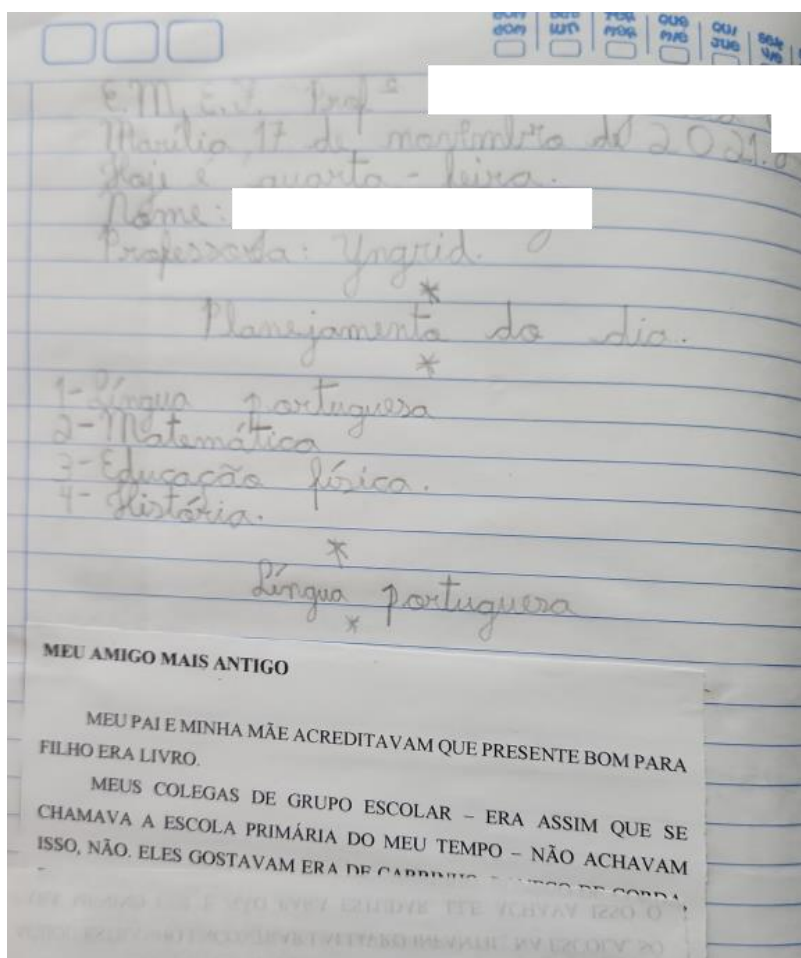 DOM SEG TER QUA QUI SEX
DOM LUN MAR MIE JUE VIE
E.M.E.F. Profª
Marília, 17 de novembro de 2021.
Hoje é quarta-feira.
Nome:
Professora: Yngrid.
*
Planejamento do dia.
*
1- Língua portuguesa
2- Matemática
3- Educação física.
4- História.
*
Língua portuguesa
*
MEU AMIGO MAIS ANTIGO
MEU PAI E MINHA MÃE ACREDITAVAM QUE PRESENTE BOM PARA
FILHO ERA LIVRO.
MEUS COLEGAS DE GRUPO ESCOLAR – ERA ASSIM QUE SE
CHAMAVA A ESCOLA PRIMÁRIA DO MEU TEMPO – NÃO ACHAVAM
ISSO, NÃO. ELES GOSTAVAM ERA DE CARRINHO, BONECO DE CORDA,